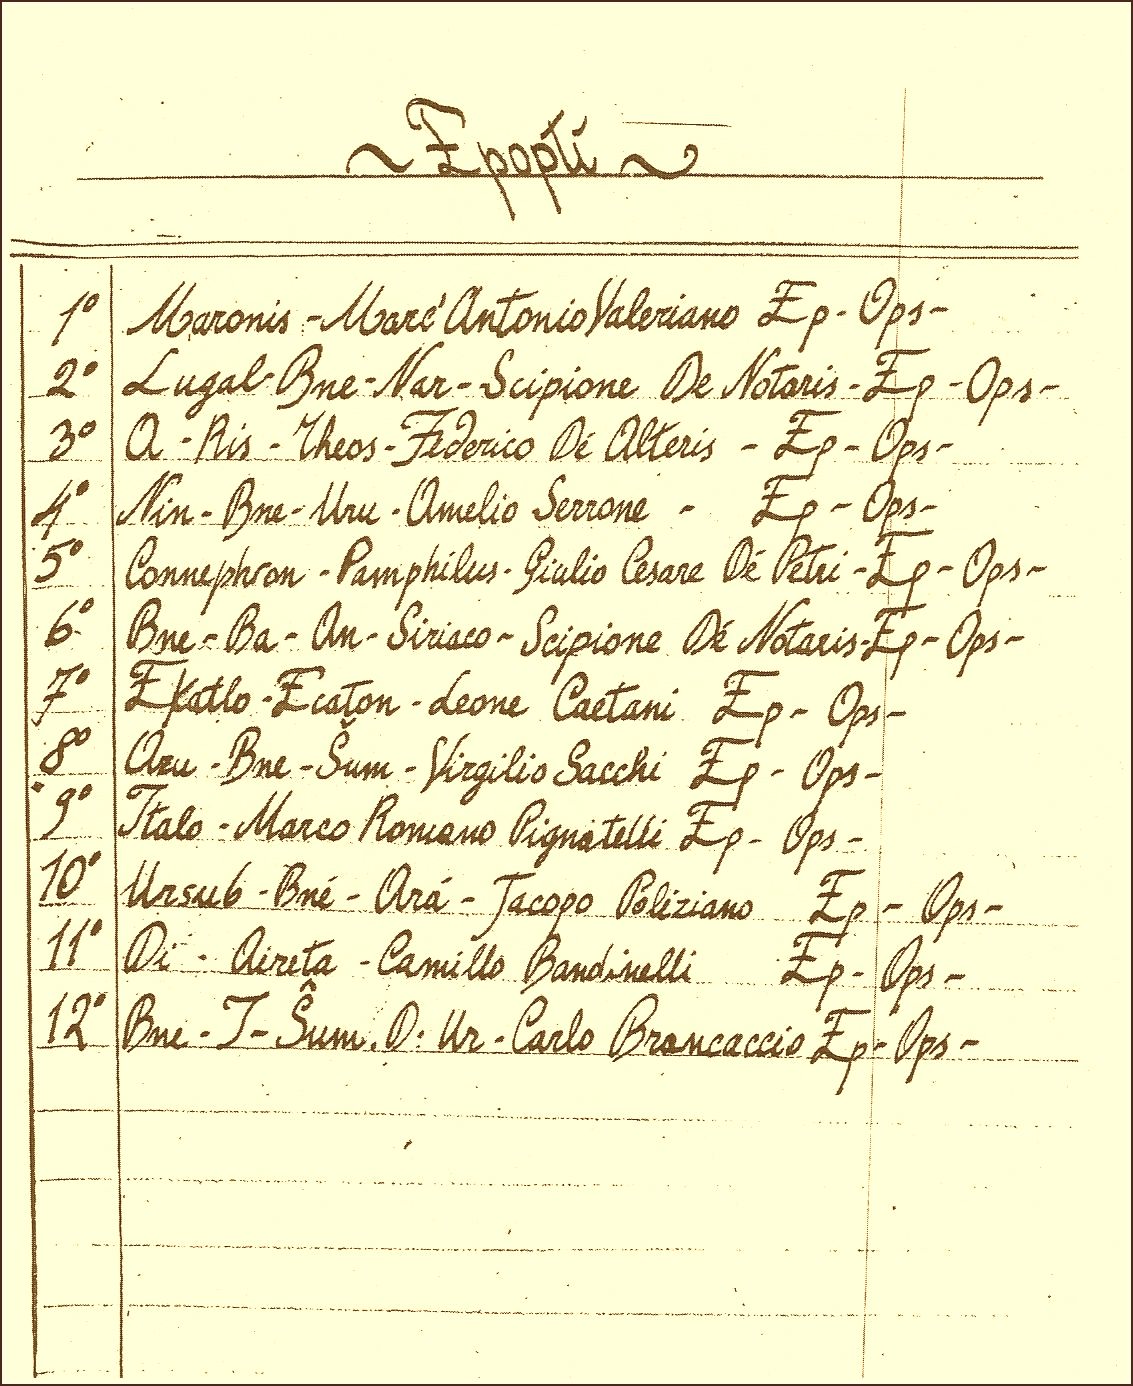 ~ Epopti ~
1º Maronis - Marc'Antonio Valeriano Ep - Ops -
2º Lugal - Bne - Nar - Scipione De Notaris - Ep - Ops -
3º A - Ris - Theos - Federico Dé Alteris - Ep - Ops -
4º Nin - Bne - Uru - Amelio Serrone - Ep - Ops -
5º Connephron - Pamphilus - Giulio Cesare Dé Petri - Ep - Ops -
6º Bne - Ba - An - Siriaco - Scipione Dé Notaris - Ep - Ops -
7º Ekatlo - Ecaton - Leone Caetani Ep - Ops -
8º Azu - Bne - Šum - Virgilio Sacchi Ep - Ops -
9º Italo - Marco Romano Pignatelli Ep - Ops -
10º Ursub - Bné - Ará - Jacopo Poliziano Ep - Ops -
11º Di - Aireta - Camillo Bandinelli Ep - Ops -
12º Bne - I - Ŝum. D: Ur - Carlo Brancaccio Ep - Ops -